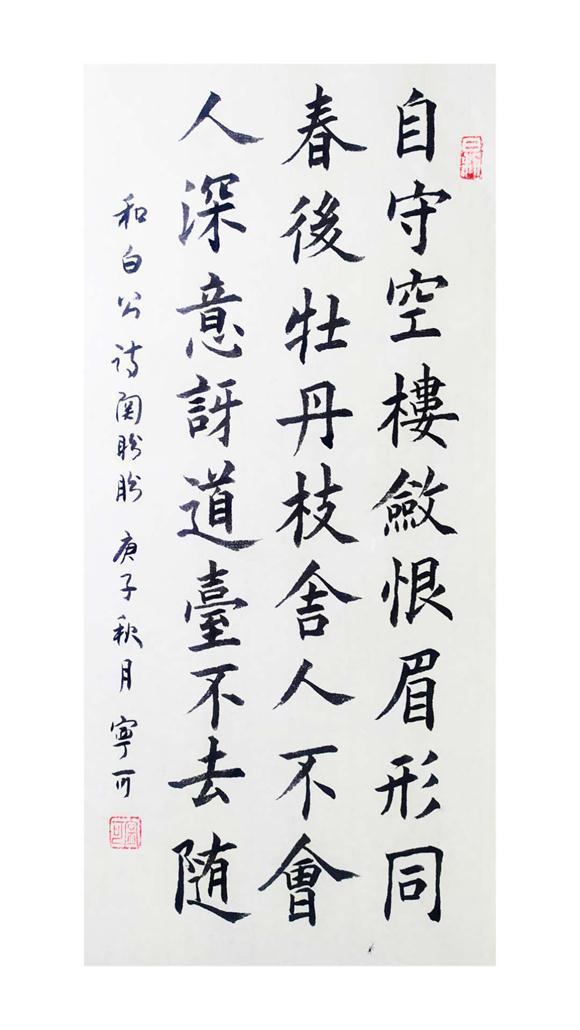 自守空樓斂恨眉形同
春後牡丹枝舍人不會
人深意訝道臺不去随
和白公诗関盼盼 庚子秋月 寧可